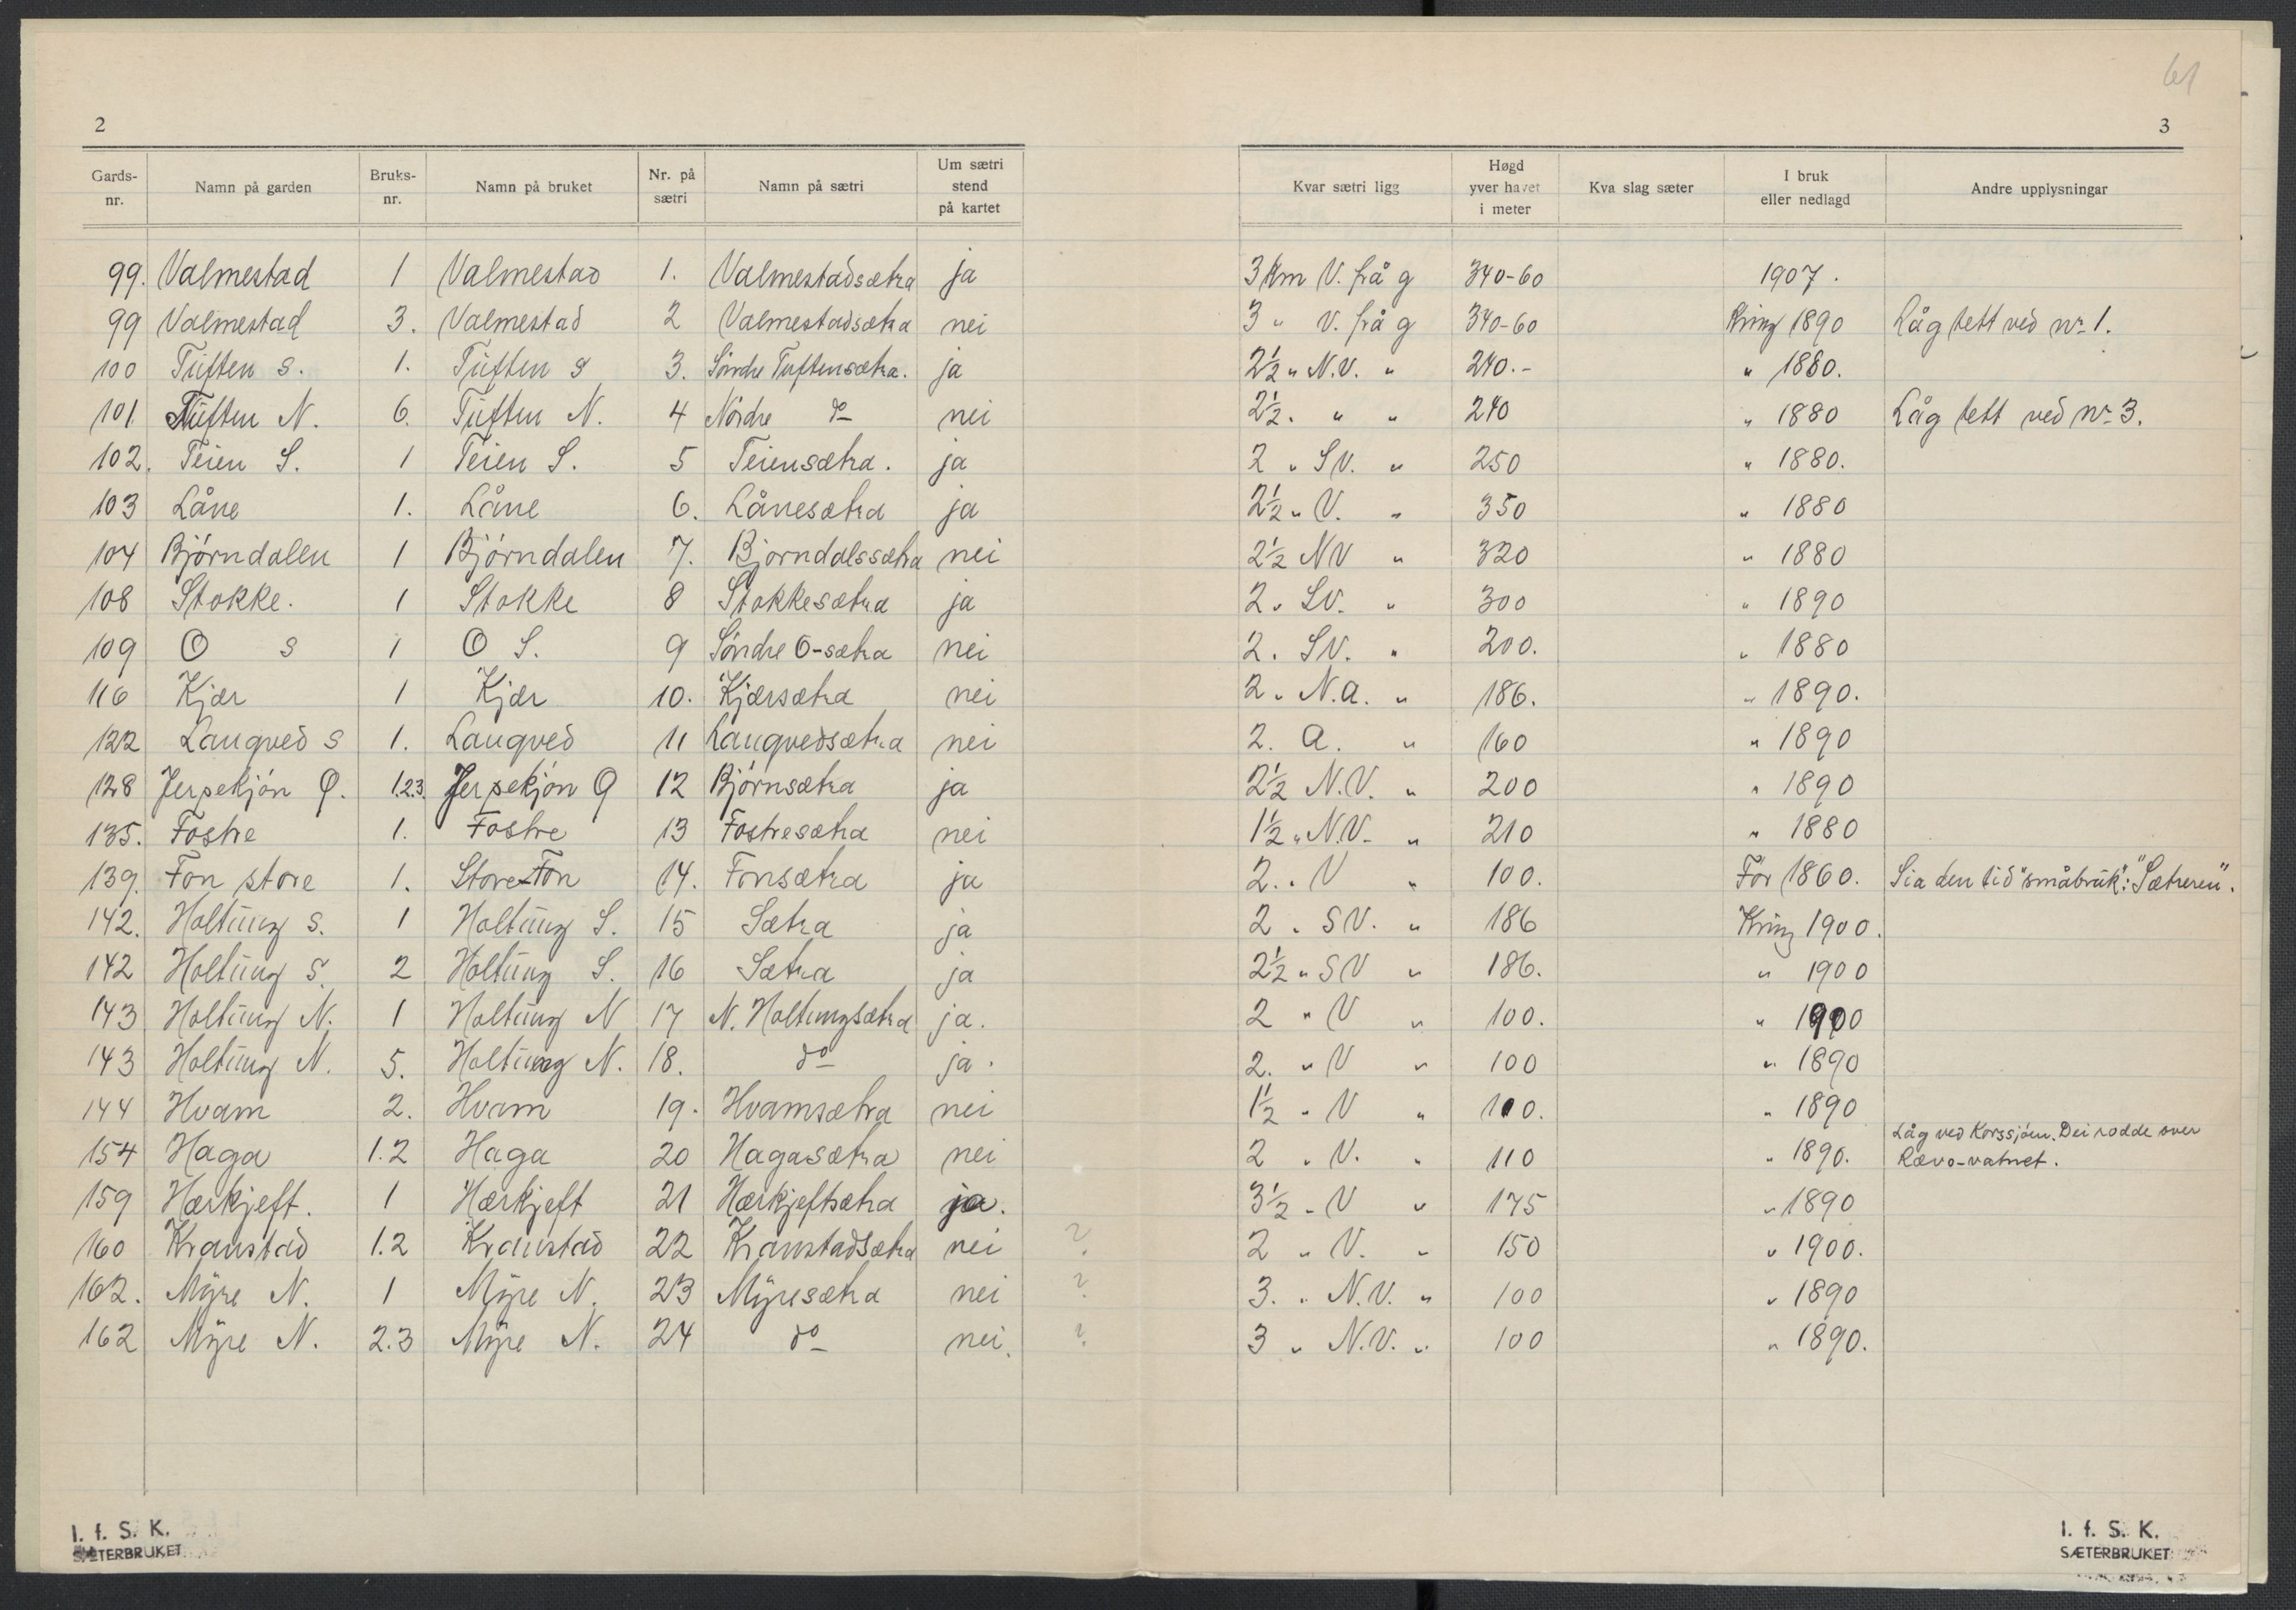 61
2
3
Gards-nr. Namn på garden Bruks-nr. Namn på bruket Nr. på sætri Namn på sætri Um sætri stend på kartet Kvar sætri ligg Høgd yver havet i meter Kva slag sæter I bruk eller nedlagd Andre upplysningar
99. Valmestad 1 Valmestad 1. Valmestadsætra ja 3 Km V. frå g 340-60 1907.
99 Valmestad 3. Valmestad 2 Valmestadsætra nei 3 " V. frå g 340-60 Kring 1890 Låg tett ved nr 1.
100 Tuften S. 1. Tuften S 3. Söndre Tuftensætra. ja 2½ " N.V. " 240.- " 1880.
101 Tuften N. 6. Tuften N. 4 Nördre do nei 2½. " " 240 " 1880 Låg tett ved nr 3.
102. Teien S. 1 Teien S. 5 Teiensætra. ja 2 " SV. " 250 " 1880.
103 Låne 1. Låne 6. Lånesætra ja 2½ " V. " 350 " 1880
104 Björndalen 1 Björndalen 7. Bjorndalssætra nei 2½ NV " 320 " 1880
108 Stokke. 1 Stokke 8 Stokkesætra ja 2 " SV. " 300 " 1890
109 O S 1 O S. 9 Söndre O-sætra nei 2. SV. " 200. " 1880
116 Kjær 1 Kjær 10. Kjærsætra nei 2 " N.A. " 186. " 1890.
122 Langved S 1. Langved 11 Langvedsætra nei 2. A. " 160 " 1890
128 Jerpekjön Ø. 1.2.3. Jerpekjön Ø 12 Björnsætra ja 2½ N.V. " 200 " 1890
135. Fostre 1. Fostre 13 Fostresætra nei 1½ " N.V. " 210 " 1880
139. Fon store 1. Store-Fon 14. Fonsætra ja 2. " V " 100. För 1860. Sia den tid "småbruk": "Sætreren".
142. Holtung S. 1 Holtung S. 15 Sætra ja 2 " SV. " 186 Kring 1900.
142 Holtung S. 2 Holtung S. 16 Sætra ja 2½ " SV " 186. " 1900
143 Holtung N. 1 Holtung N 17 N. Holtungsætra ja. 2 " V " 100. " 1900
143 Holtung N. 5. Holtung N. 18. do ja. 2. " V " 100 " 1890
144 Hvam 2. Hvam 19. Hvamsætra nei 1½ " V " 100. " 1890
154 Haga 1.2 Haga 20 Hagasætra nei 2 " V. " 110 " 1890. Låg ved Korssjöen. Dei rodde over Rævo-vatnet.
159 Hærkjeft. 1 Hærkjeft 21 Hærkjeftsætra ja. 3½ " V " 175 " 1890
160 Kranstad 1.2 Kranstad 22 Kranstadsætra nei ? 2 " V. " 150 " 1900.
162. Myre N. 1 Myre N. 23 Myresætra nei ? 3. " N.V. " 100 " 1890
162 Myre N. 2.3 Myre N. 24 do nei. ? 3 " N.V. " 100 " 1890.
I. f. S. K.
SÆTERBRUKET
I. f. S. K.
SÆTERBRUKET